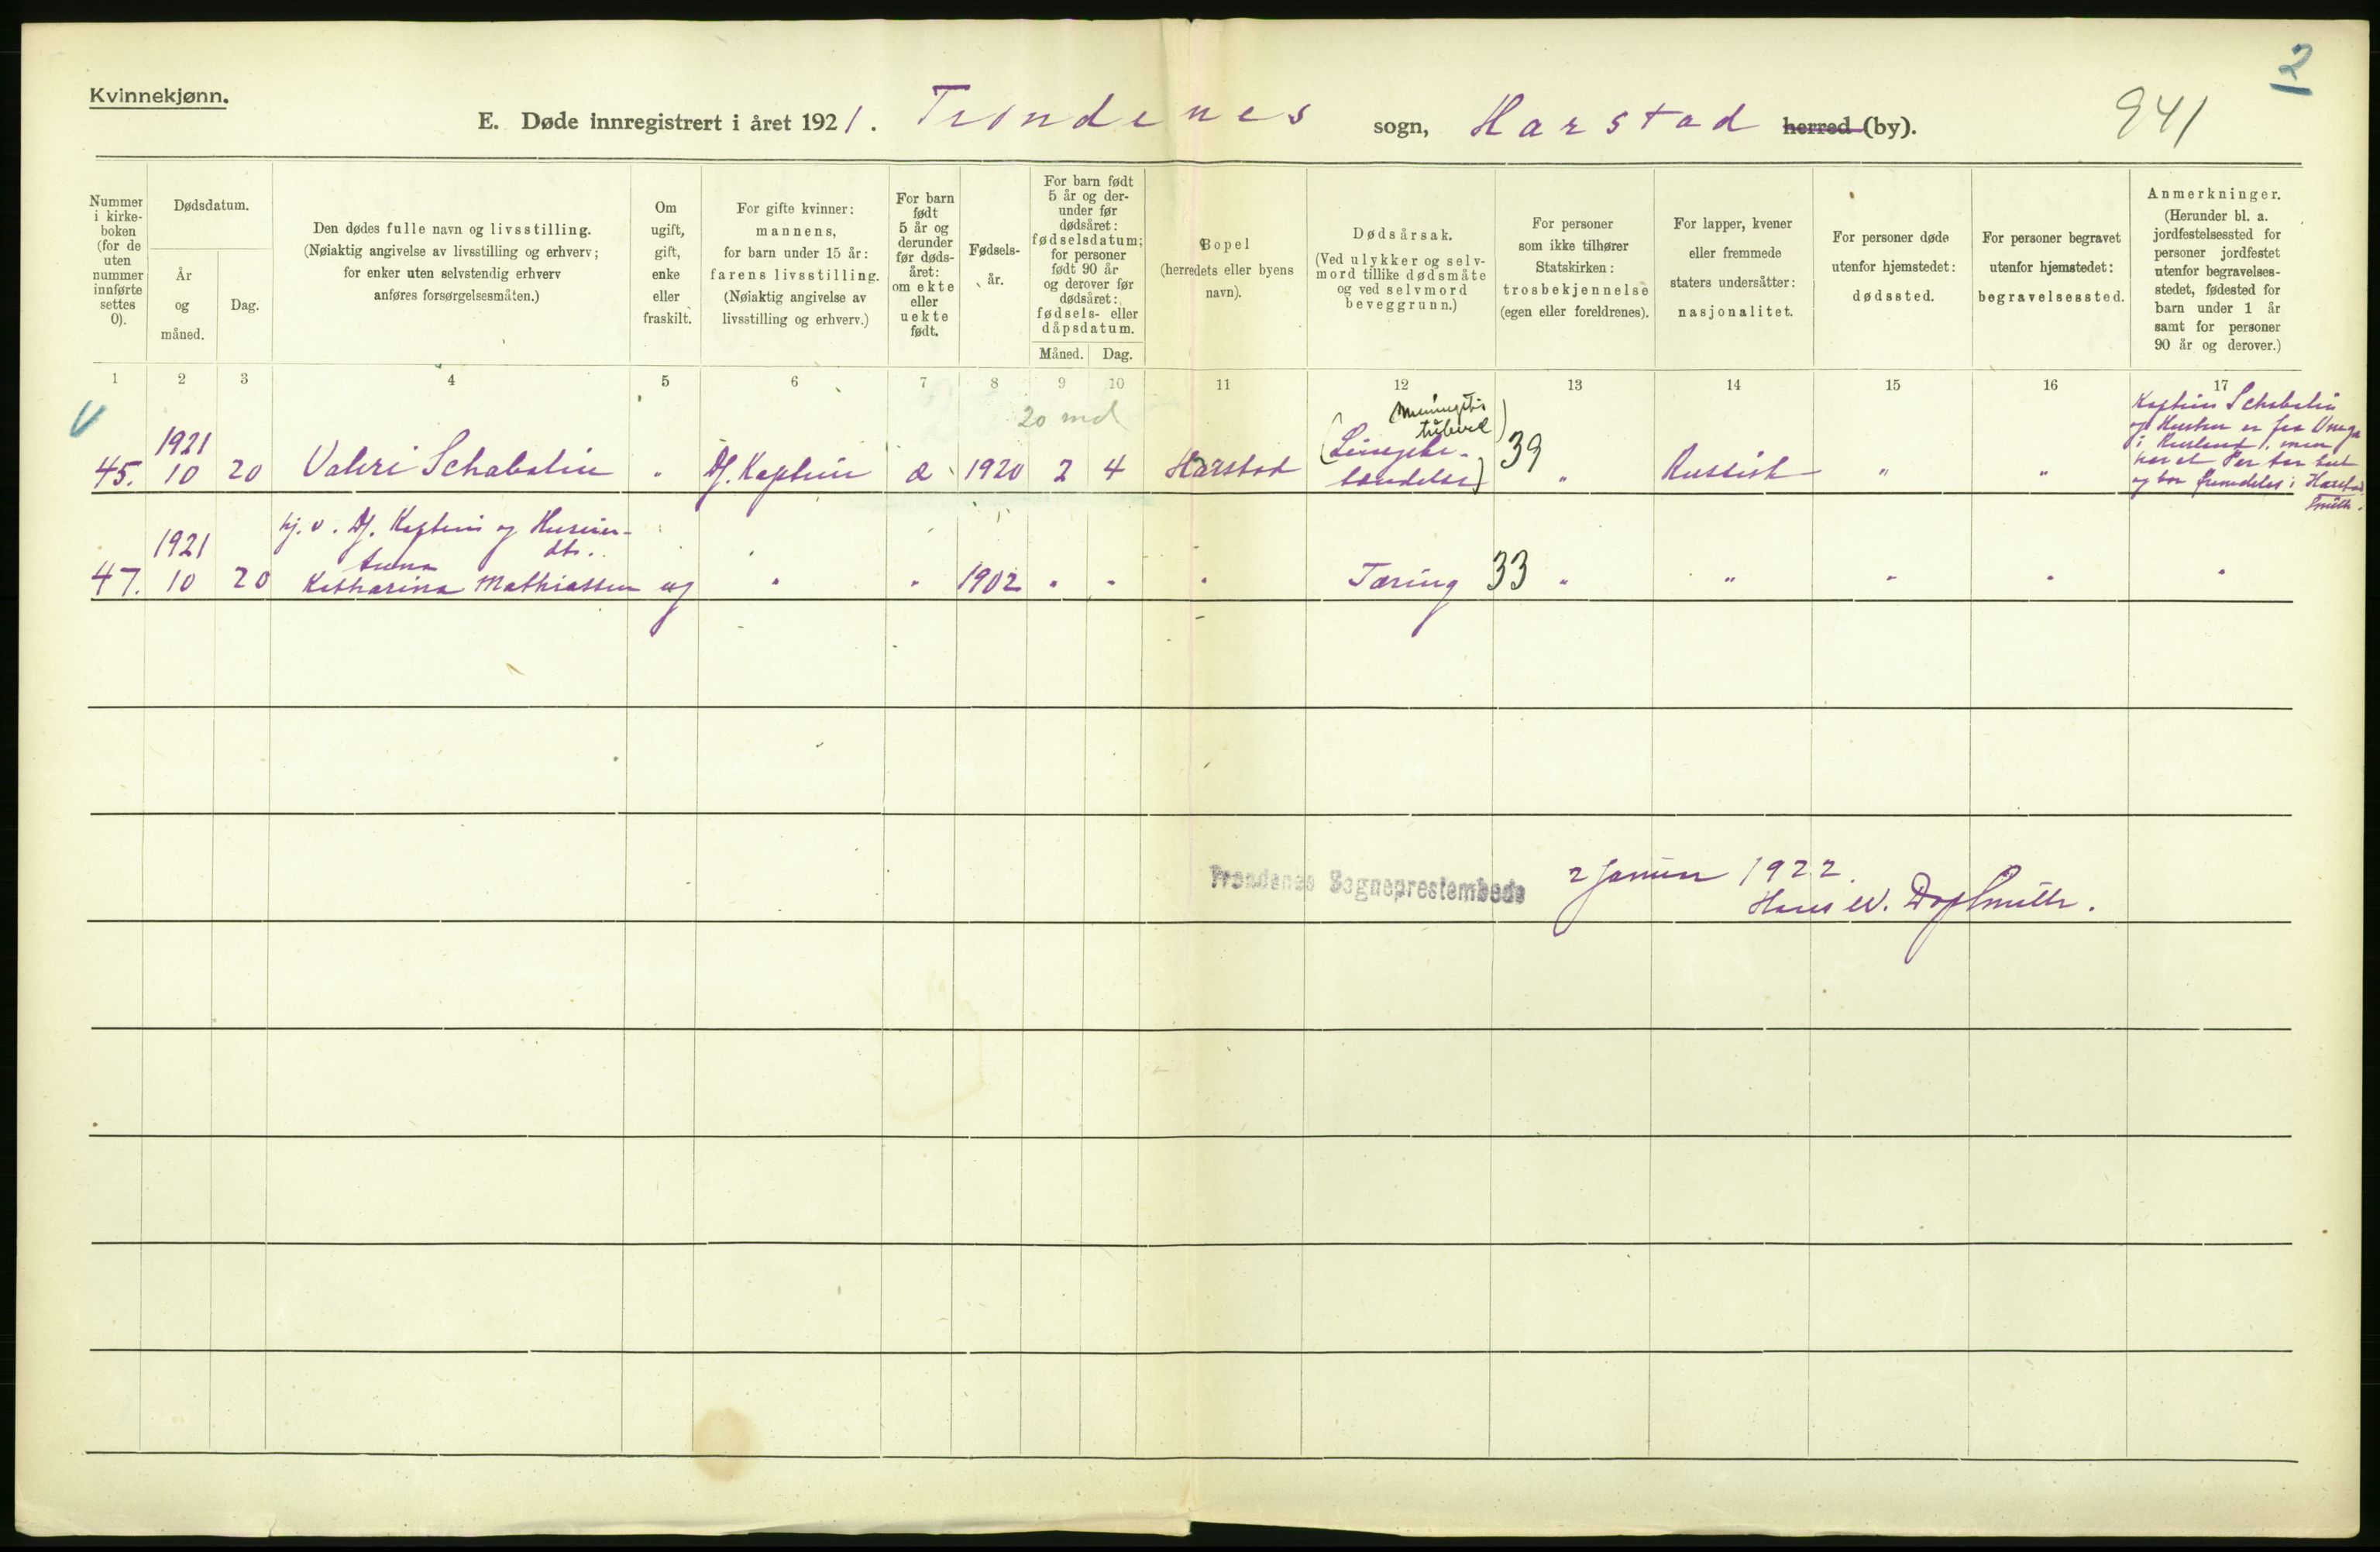 Kvinnekjønn.
2
941
E. Døde innregistrert i året 1921. Trondenes sogn, Harstad herred (by).
Nummer i kirke-boken (for de uten nummer innførte settes 0).
Dødsdatum.
År og måned.
Dag.
Den dødes fulle navn og livsstilling.
(Nøiaktig angivelse av livsstilling og erhverv;
for enker uten selvstendig erhverv
anføres forsørgelsesmåten.)
Om ugift, gift, enke eller fraskilt.
For gifte kvinner:
mannens,
for barn under 15 år:
farens livsstilling.
(Nøiaktig angivelse av
livsstilling og erhverv.)
For barn født 5 år og derunder før døds-året: om ekte eller uekte født.
Fødsels-år.
For barn født 5 år og der-under før dødsåret: fødselsdatum; for personer født 90 år og derover før dødsåret: fødsels- eller dåpsdatum.
Måned. Dag.
Bopel
(herredets eller byens
navn).
Dødsårsak.
(Ved ulykker og selv-
mord tillike dødsmåte
og ved selvmord
beveggrunn.)
For personer
som ikke tilhører
Statskirken:
trosbekjennelse
(egen eller foreldrenes).
For lapper, kvener
eller fremmede
staters undersåtter:
nasjonalitet.
For personer døde
utenfor hjemstedet:
dødssted.
For personer begravet
utenfor hjemstedet:
begravelsessted.
Anmerkninger.
(Herunder bl. a.
jordfestelsessted for
personer jordfestet
utenfor begravelses-
stedet, fødested for
barn under 1 år
samt for personer
90 år og derover.)
1 2 3 4 5 6 7 8 9 10 11 12 13 14 15 16 17
20 md
45. 1921 10 20 Valeri Schabalin " Df. Kaptein 1920 2 4 Harstad 39 " Russisk " "
Kaptein Schabalin
og Hustru er fra Onega
i Rusland, men
har et Par Aar
og bor fremdeles i Harstad
Smith.
hj. v. Df. Kaptein og Huseier-
dtr.
47. 1921 10 20 Anna Katharina Mathiassen ug " " 1902 " " " Tæring 33 " " " " "
Trondenes Sogneprestembede 2 Januar 1922.
Hans W. Smith.